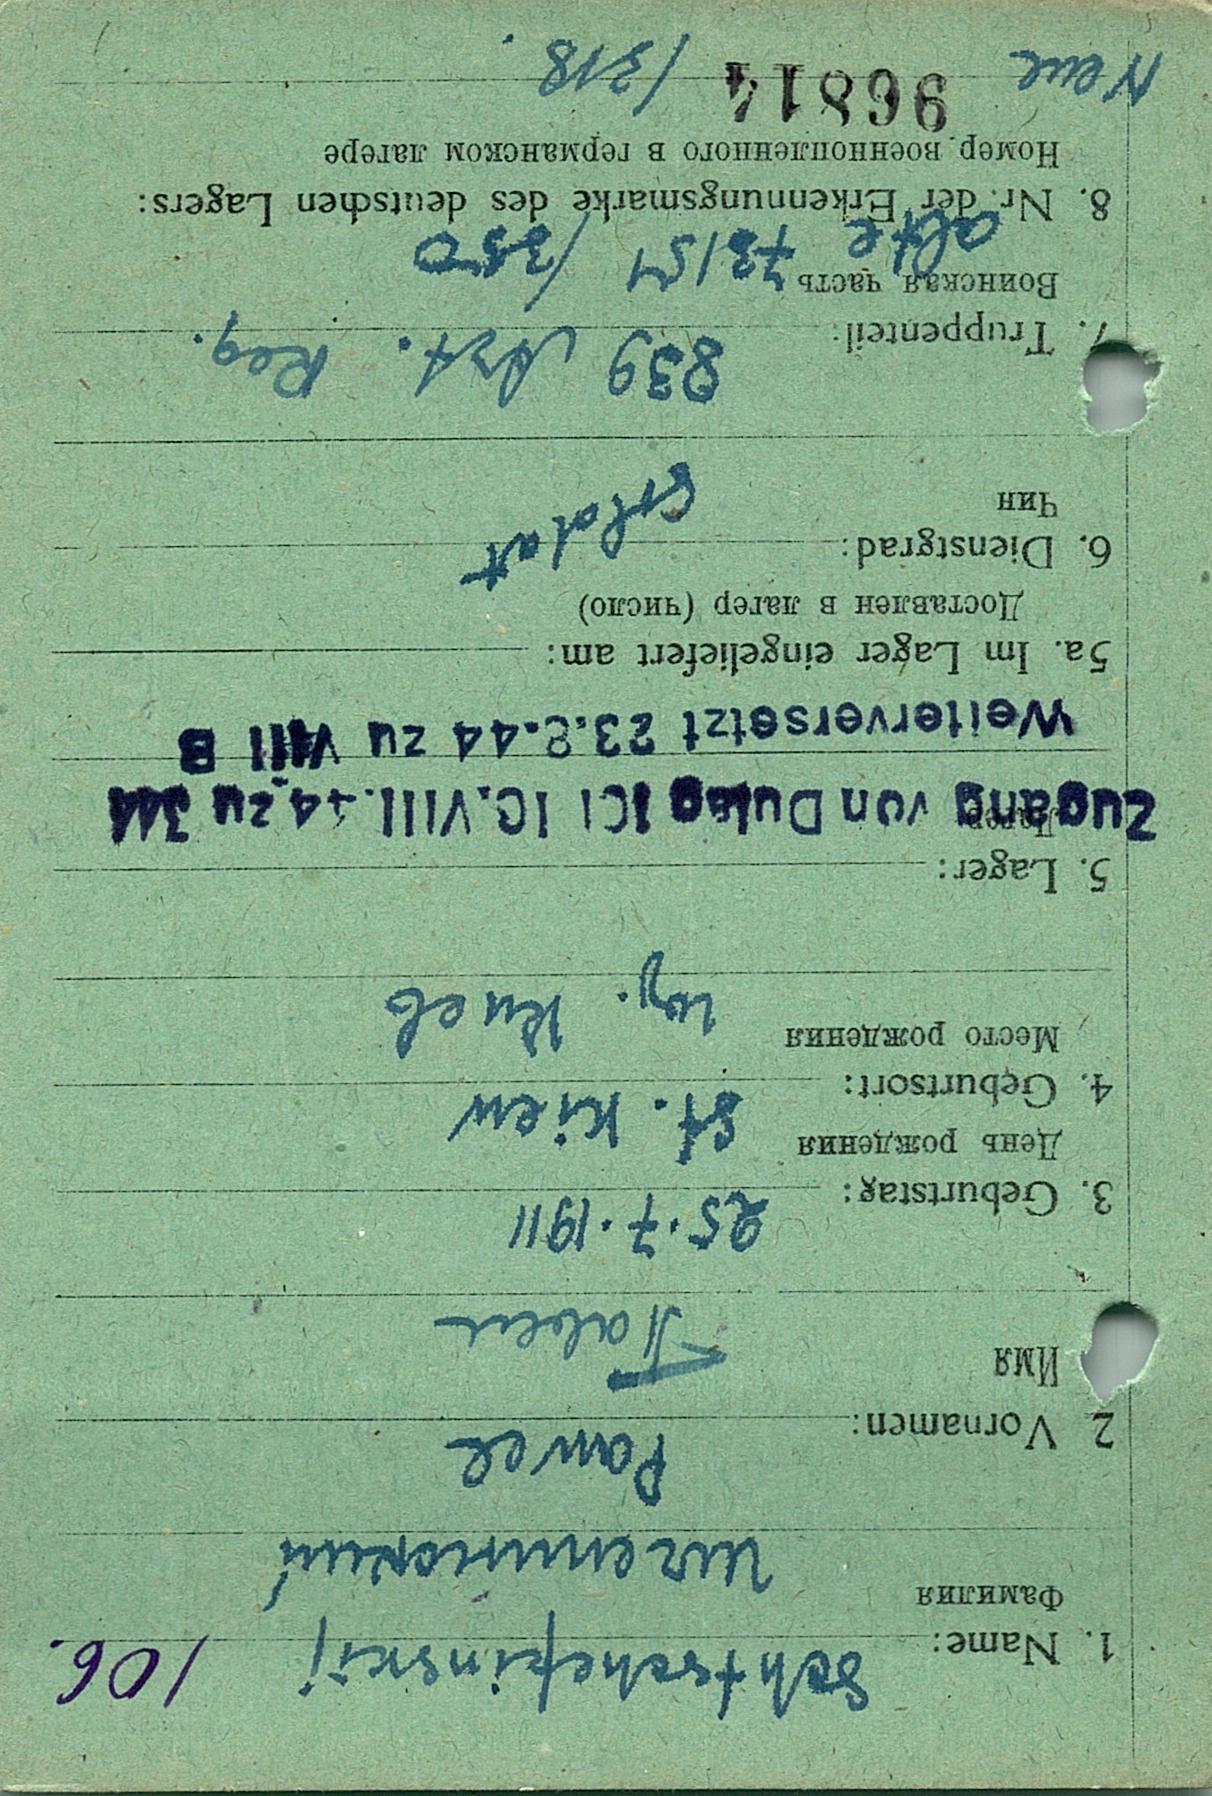 106.
1. Name: Schtschepinskij
Фамилия
Щепинский
2 Vornamen: Pawel
Имя
Павел
3. Geburtstag: 25.7.1911
День рождения
4. Geburtsort: St. Kiew
Место рождения
гор. Киев
5. Lager:
Лагер
Zugang von Dulag 101 10.VIII.44 zu 344
Weiterversetzt 23.8.44 zu VIII B
5a. Im Lager eingeliefert am:
Доставлен в лагер (число)
6. Dienstgrad: Soldat
Чин
7. Truppenteil: 839 Art. Reg.
Воинская часть
alte 73151 /350
8. Nr. der Erkennungsmarke des deutschen Lagers:
Номер военнопленного в германском лагере
Neue 96814 /318.